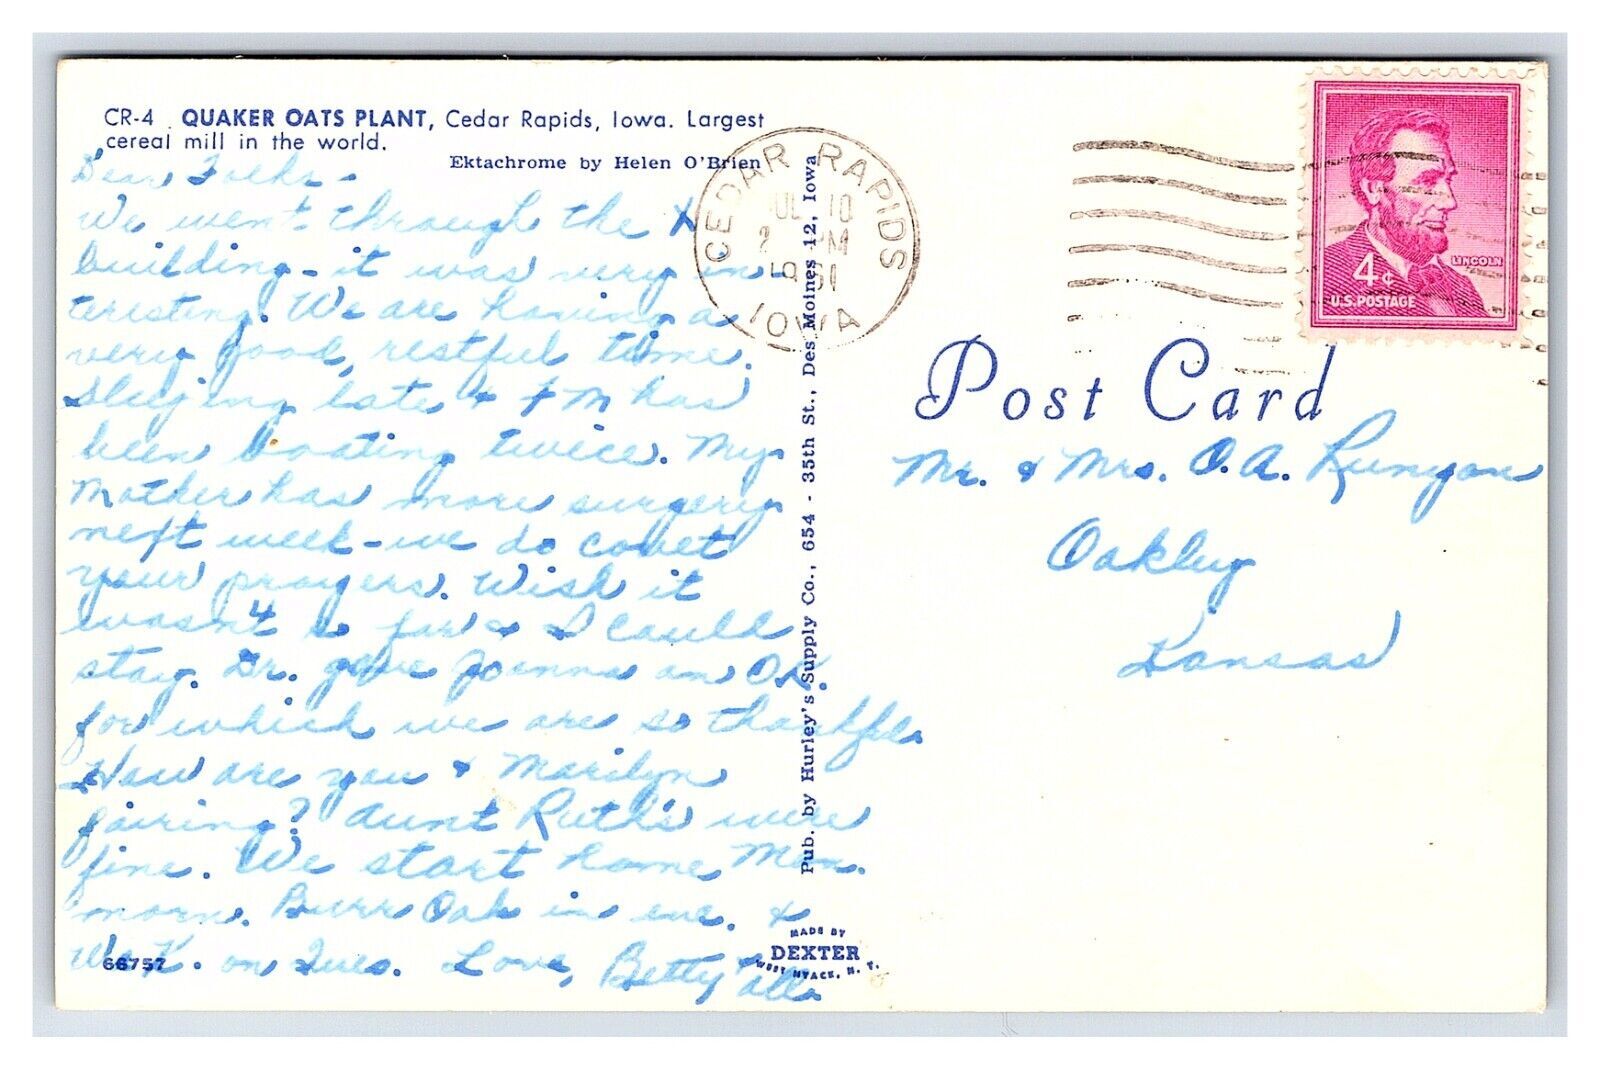 CR-4 QUAKER OATS PLANT, Cedar Rapids, Iowa. Largest
cereal mill in the world.
Ektachrome by Helen O'Brien
Dear Folks -
We went through the X
building - it was very in-
teresting. We are having a
very good, restful time.
Sleeping late & has
been boating twice. My
Mother has more surgery
next week - we do covet
your prayers. Wish it
wasn't so far & I could
stay. Dr. gave Joanna an O.K.
for which we are so thankful.
How are you & Marilyn
fairing? Aunt Ruth's were
fine. We start home Mon.
morn. Burr Oak in eve. &
on Tues. Love, Betty & all
66757
Pub. by Hurley's Supply Co., 654 - 35th St., Des Moines 12, Iowa
MADE BY
DEXTER
WEST NYACK, N. Y.
CEDAR RAPIDS
JUL 10
PM
1961
IOWA
LINCOLN
4¢
U.S. POSTAGE
Post Card
Mr. & Mrs. O. A. Runyon
Oakley
Kansas